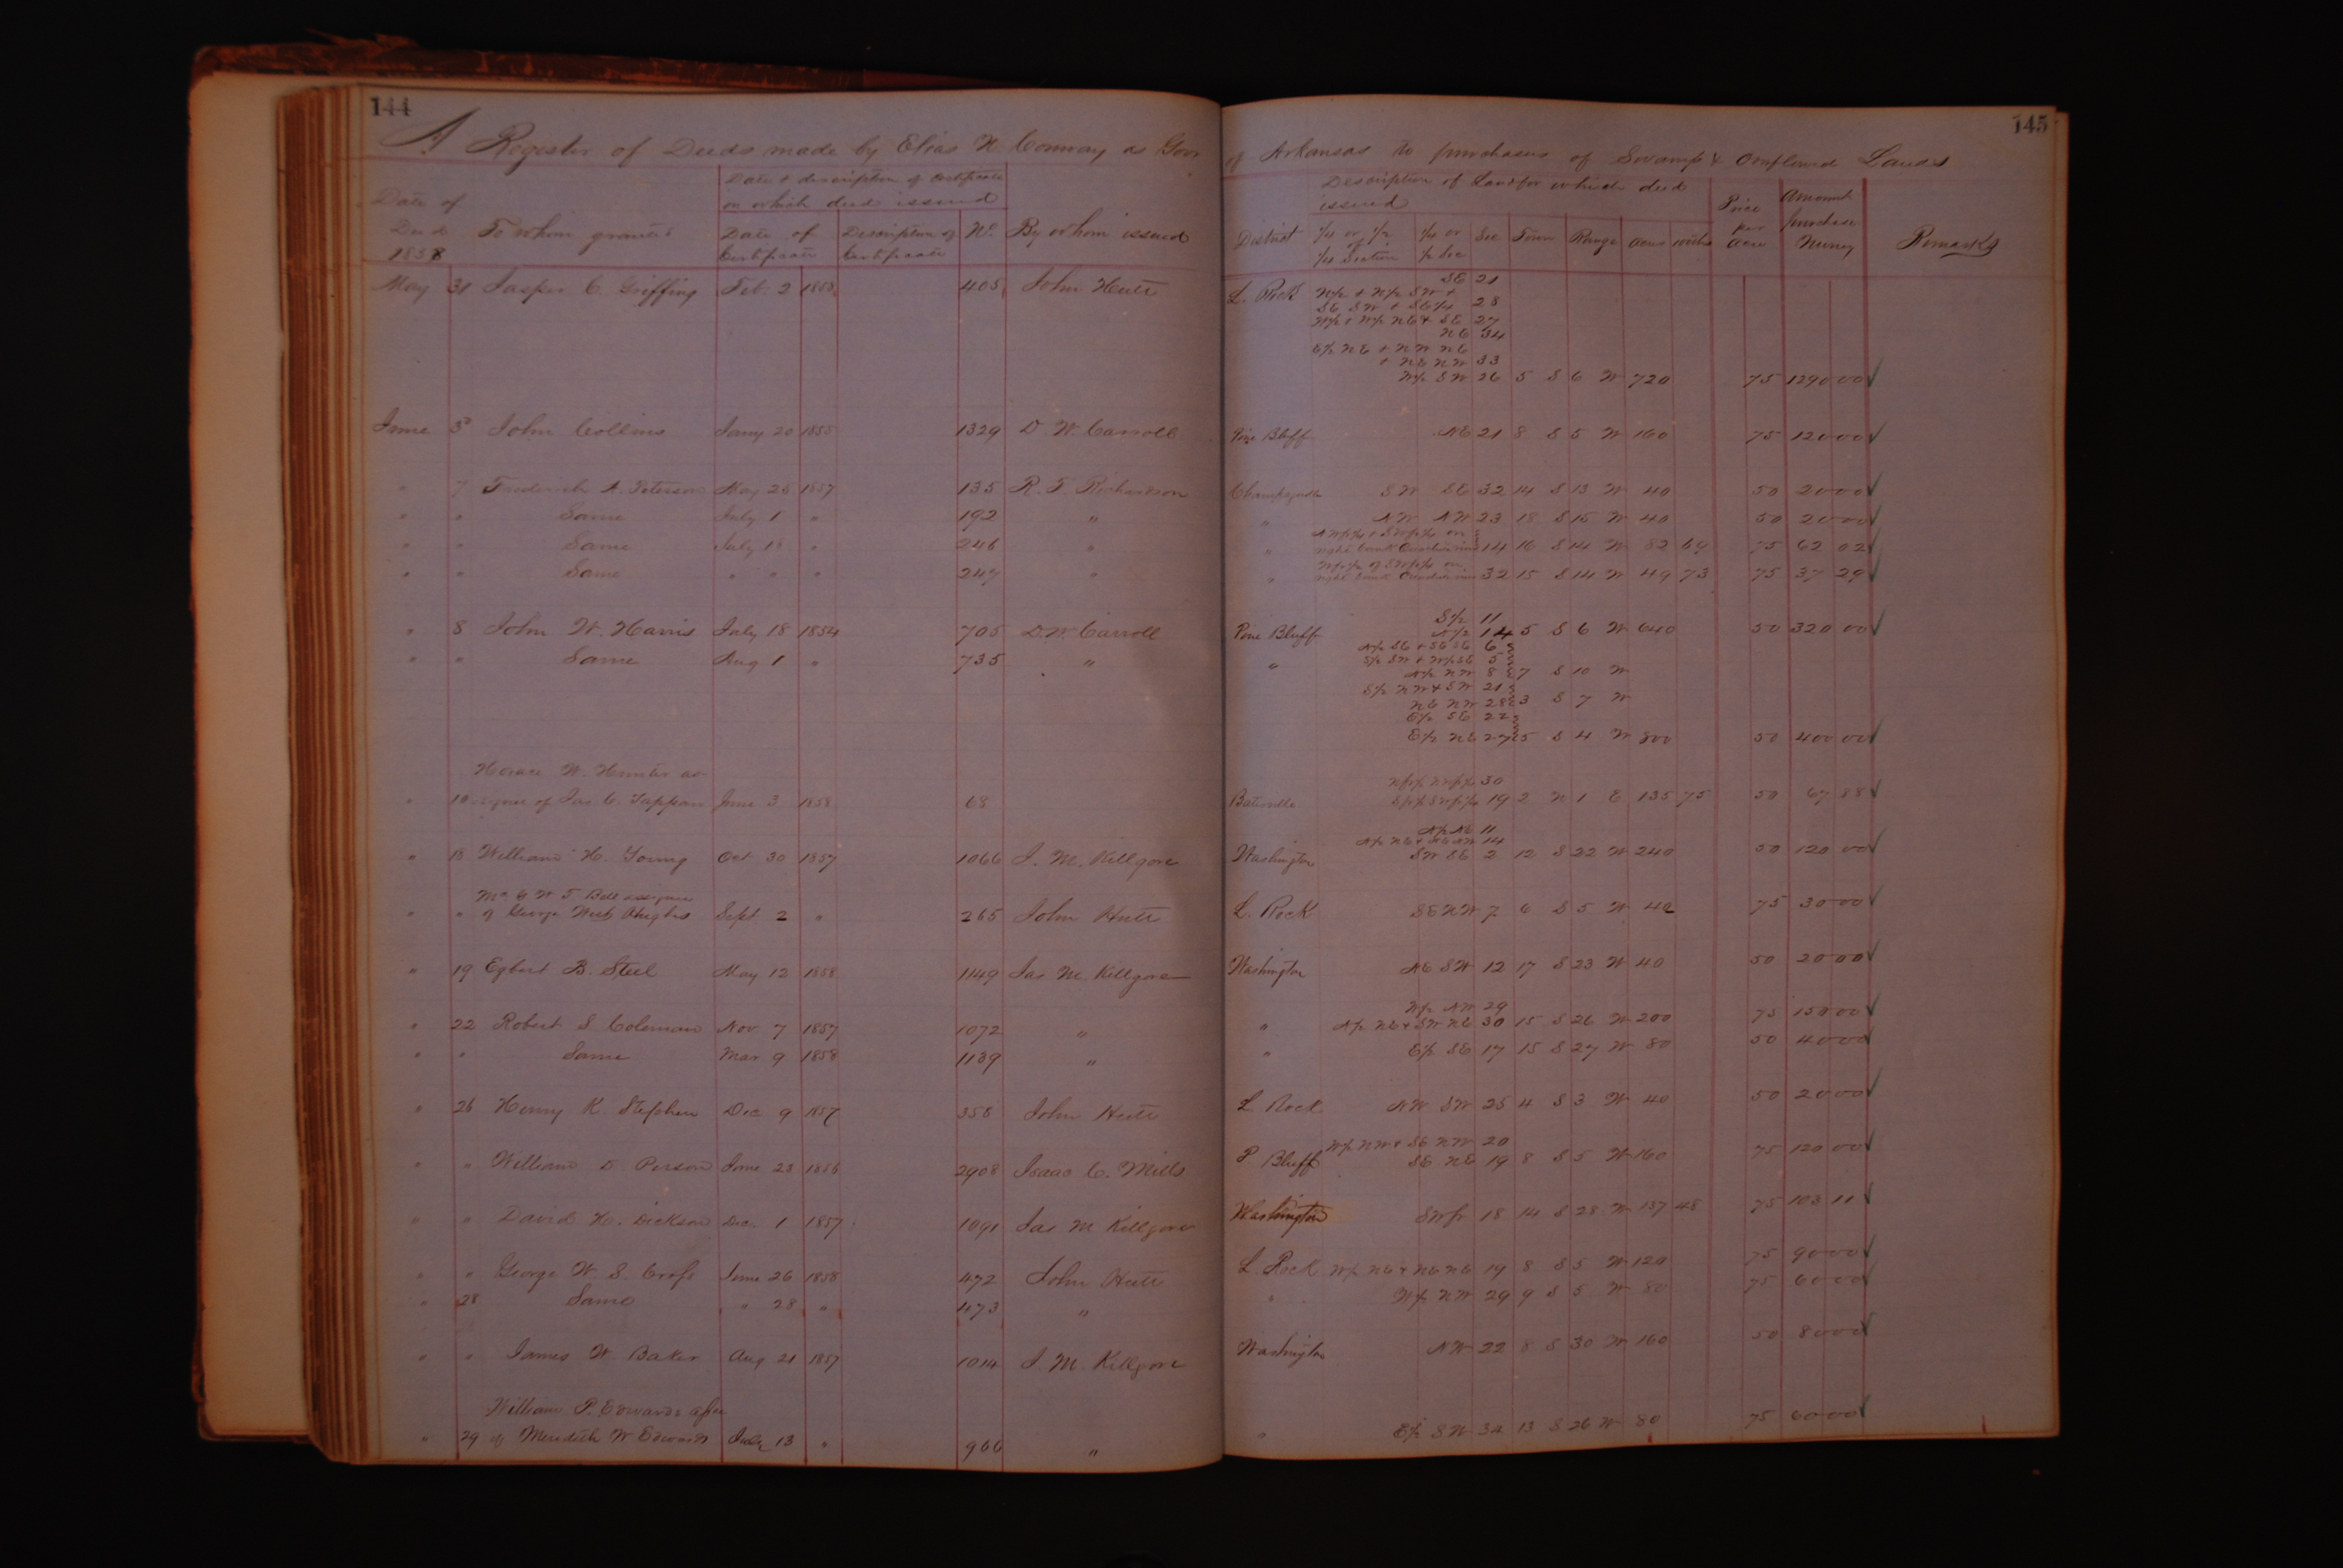 144
145
A Register of Deeds made by Elias N Conway as Gov
of Arkansas to purchasers of Swamp & Overflowed Lands
Date of Deed 1858
To whom granted
Date & description of Certificate on which deed issued
Date of Certificate
Description of Certificate
No.
By whom issued
District
Description of Land for which deed issued
1/4 or 1/2 of 1/4 Section
1/4 or 1/2 Sec
Sec
Town
Range
acres
Price per acre
Amount purchase Money
Remarks
May 31 Jasper C. Griffing Feb. 2 1858 405 John Hutt L. Rock SE 21
N/2 & N/2 SW &
SE SW & SE 1/4 28
W/2 & W/2 NE & SE 27
NE 34
E/2 NE & NW NE
& NE NW 33
W/2 SW 26 5 S 6 W 720 75 1290 00
June 3d John Collins Jany 20 1855 1329 D. W. Carroll Pine Bluff NE 21 8 S 5 W 160 75 120 00
" 7 Frederick A. Peterson May 25 1857 135 R. F. Richardson SW SE 32 14 S 13 W 40 50 20 00
" " Same July 1 " 192 " " NW NW 23 18 S 15 W 40 50 20 00
" " Same July 18 " 246 " " right bank 14 16 S 14 W 82 69 75 62 02
" " Same " " " 247 " " right bank 32 15 S 14 W 49 73 75 37 29
" 8 John W. Harris July 18 1854 705 D. W. Carroll Pine Bluff S/2 11
N/2 14 5 S 6 W 640 50 320 00
" " Same Aug 1 " 735 " " N/2 SE & SE SE 6
S/2 SW & W/2 SE 5
N/2 NW 8 7 S 10 W
S/2 NW & SW 21
NE NW 28 3 S 7 W
E/2 SE 22
E/2 NE 27 5 S 4 W 800 50 400 00
Horace W. Hunter as-
" 10 signee of Jas C. Tappan June 3 1858 68 Batesville 30
19 2 N 1 E 135 75 50 67 88
" 18 William H. Young Oct 30 1857 1066 J. M. Killgore Washington N/2 NE 11
N/2 NE & NE NW 14
SW SE 2 12 S 22 W 240 50 120 00
W T Bell assignee
" " of George West Hughes Sept. 2 " 265 John Hutt L. Rock SE NW 7 6 S 5 W 40 75 30 00
" 19 Egbert B. Steel May 12 1858 1149 Jas M. Killgore Washington NE SW 12 17 S 23 W 40 50 20 00
" 22 Robert S. Coleman Nov 7 1857 1072 " " W/2 NW 29
N/2 NE & SW NE 30 15 S 26 W 200 75 150 00
" " Same Mar 9 1858 1139 " " E/2 SE 17 15 S 27 W 80 50 40 00
" 26 Henry K. Stephen Dec 9 1857 358 John Hutt L Rock NW SW 25 4 S 3 W 40 50 20 00
" " William D. Person June 23 1856 2908 Isaac C. Mills P. Bluff W/2 NW & SE NW 20
SE NE 19 8 S 5 W 160 75 120 00
" " David H. Dickson Dec. 1 1857 1091 Jas M Killgore Washington SW fr 18 14 S 28 W 137 48 75 103 11
" " George W. S. Cross June 26 1858 472 John Hutt L. Rock W/2 NE & NE NE 19 8 S 5 W 120 75 90 00
" 28 Same " 28 " 473 " " W/2 NW 29 9 S 5 W 80 75 60 00
" " James W Baker Aug 21 1857 1014 J. M. Killgore Washington NW 22 8 S 30 W 160 50 80 00
William P. Edwards assee
" 29 of Meredith W Edwards July 13 " 966 " " E/2 SW 34 13 S 26 W 80 75 60 00